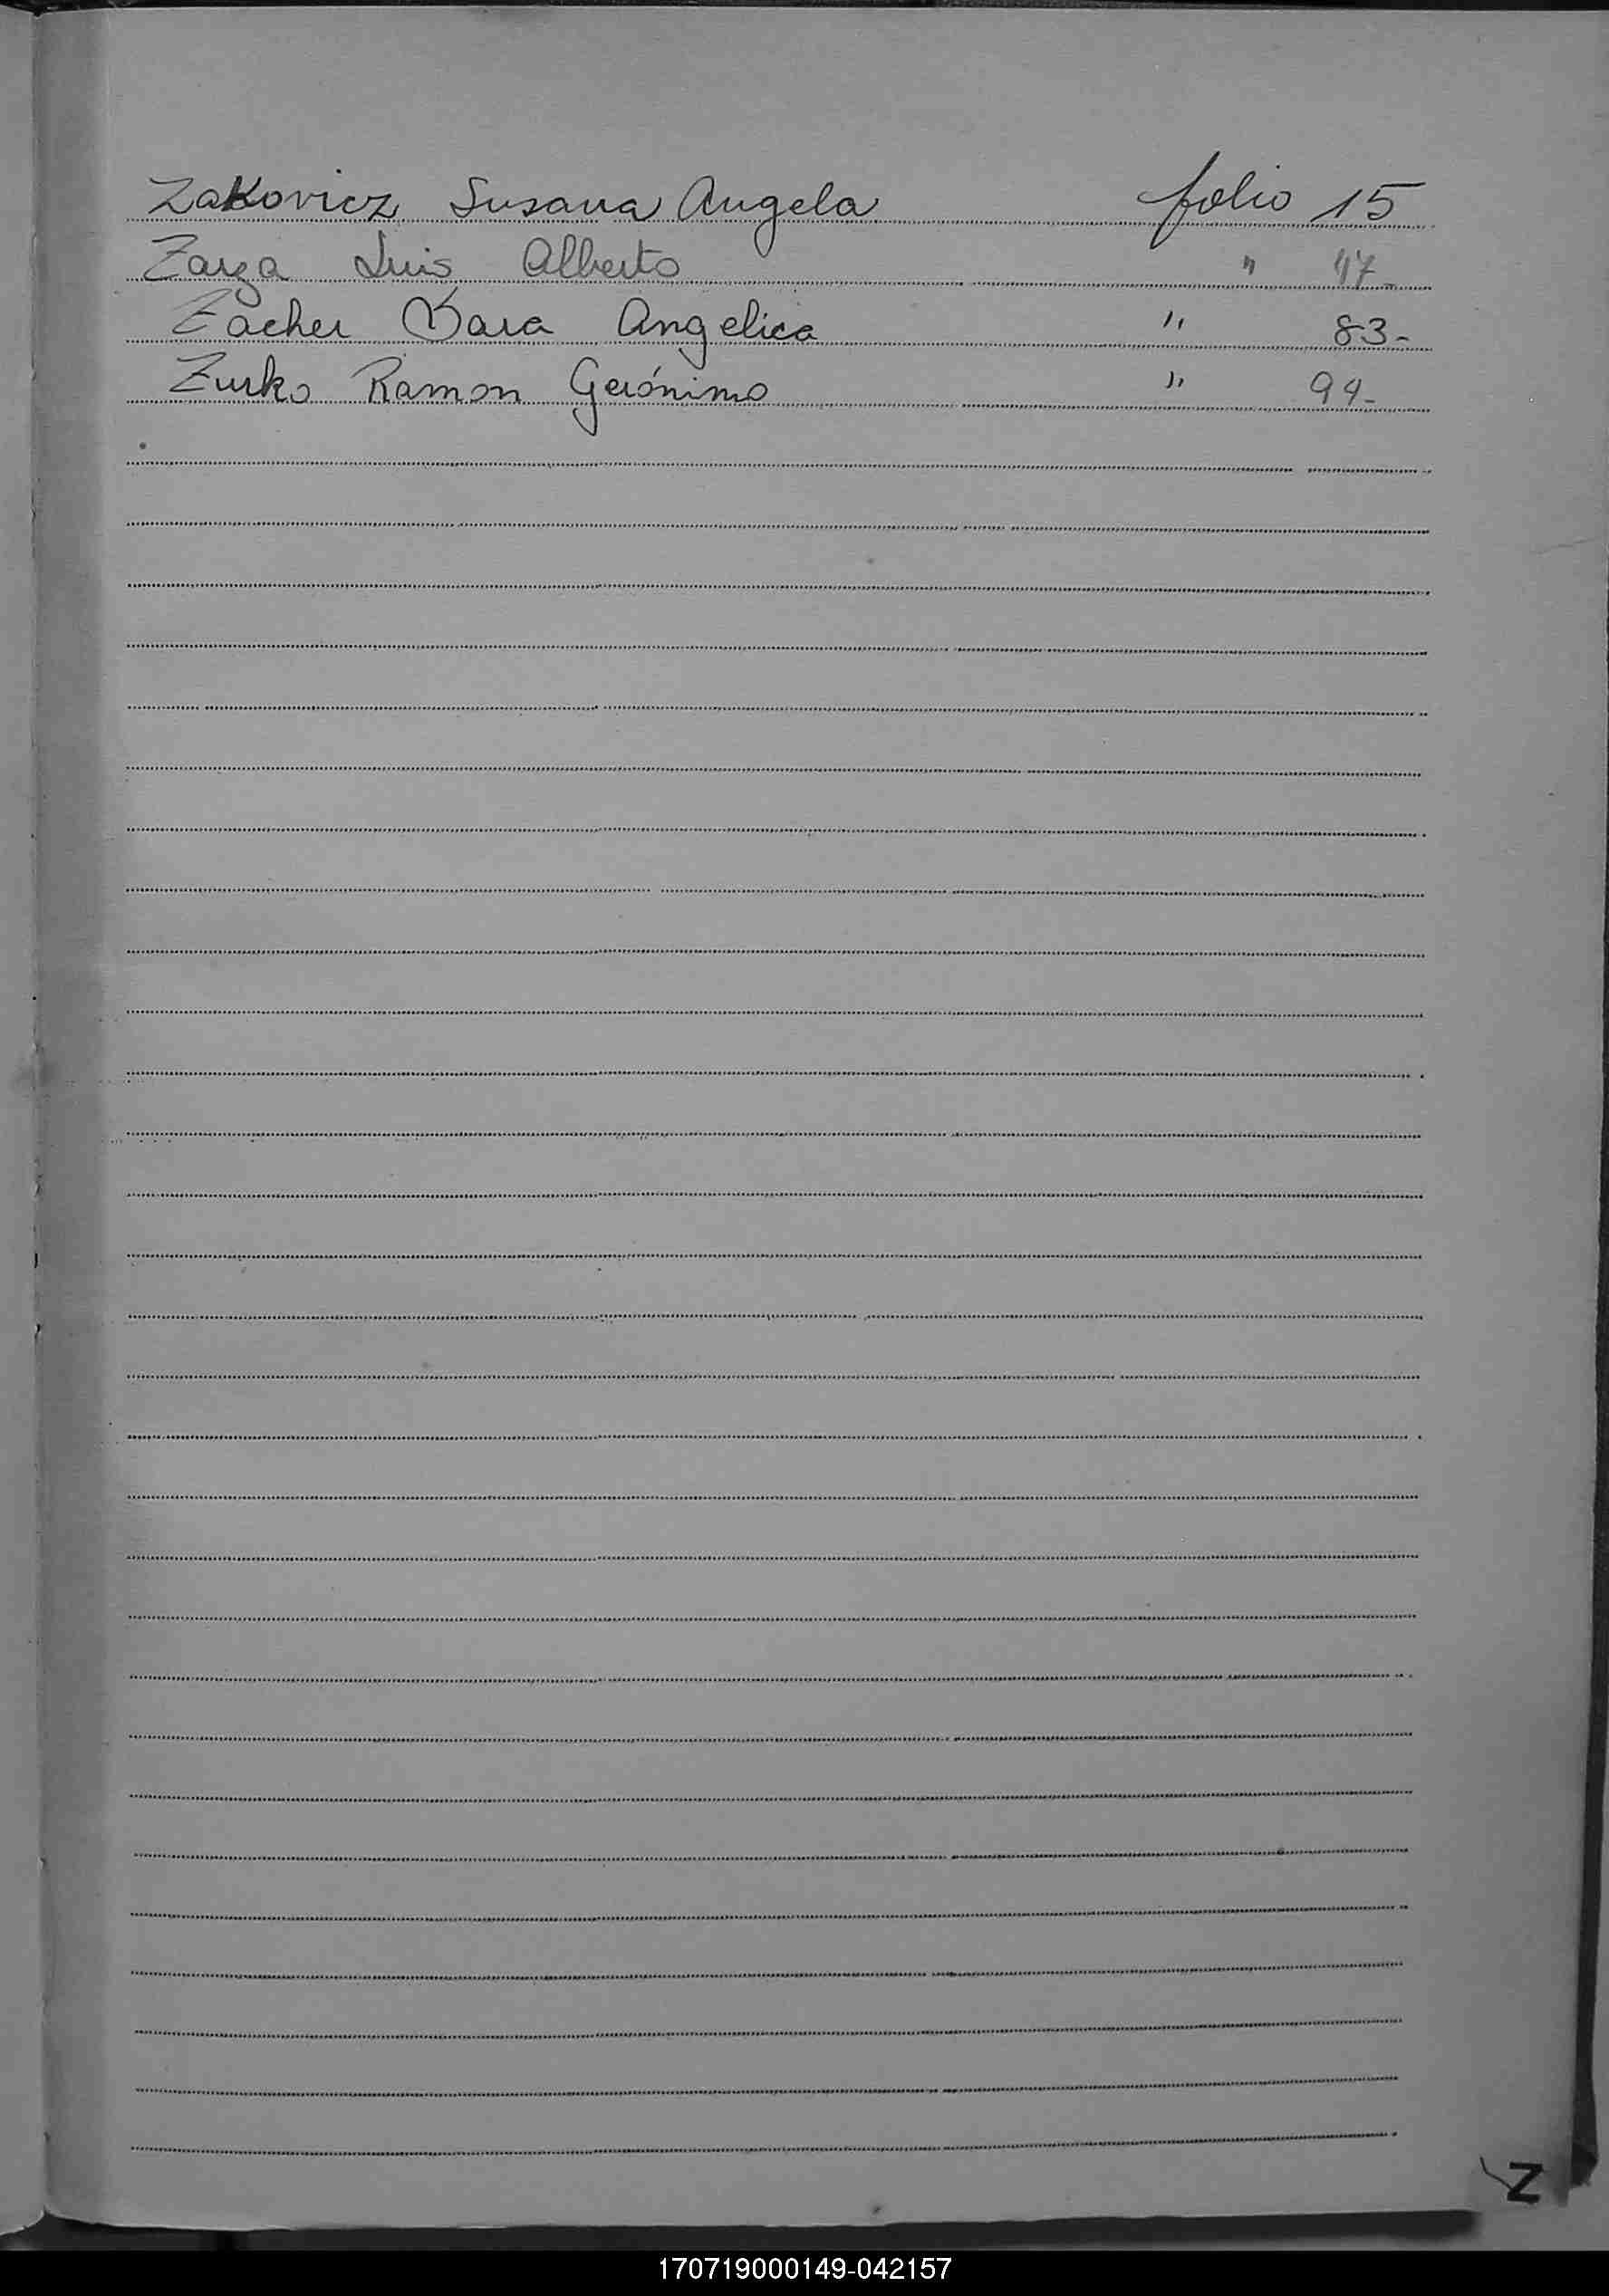 Zakovicz Susana Angela folio 15
Zarza Luis Alberto " 47-
Zacher Sara Angelica " 83-
Zurko Ramon Gerónimo " 94-
Z
170719000149-042157